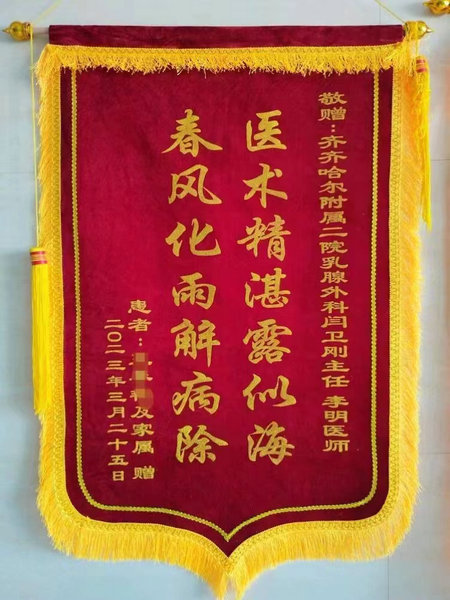 敬赠：齐齐哈尔附属二院乳腺外科闫卫刚主任 李明医师
医术精湛露似海
春风化雨解病除
患者：及家属 赠
二〇二三年三月二十五日